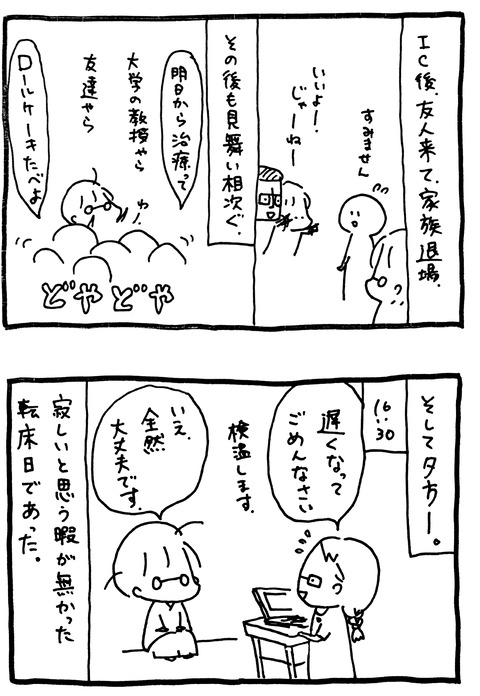 IC後、友人来て、家族退場。
すみません
いいよー！
じゃーねー
その後も見舞い相次ぐ。
明日から治療って
大学の教授やら
友達やら
ロールケーキたべよ
わー
どやどや
そして夕方ー。
16:30
遅くなって
ごめんなさい
検温します。
いえ、
全然
大丈夫です。
寂しいと思う暇が無かった
転床日であった。